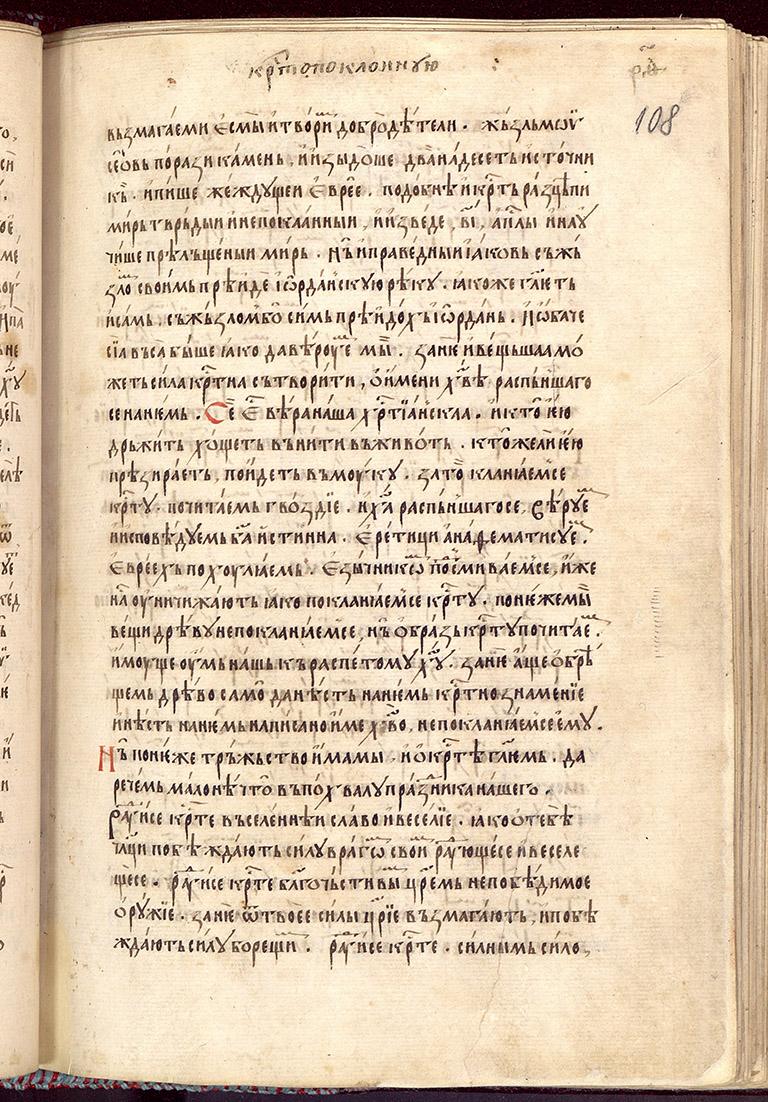 крⷭ҇топоклонную
рѿ҃
108
възмагаеми есмы и твори добродѣтели. жьзль мѡѷ
сеѡвь порази камень, и изыдоше два надесеть источни
кь. и пише жеждущеи евреѥ. подобнѣ и крⷭ҇ть разцѣпи
мирь твръдыи и непокланныи, и изведе, ві, апⷭ҇лы и лꙋ
чише прѣлъщеныи мирь. нь и праведныи іаковь съ жь
зло своимь прѣиде іѡрданскую рѣку. іакоже гл҃ѥть
и самь. съ жьзлом бѡ симь прѣидохь іѡрдань. и ѡбаче
сіа въса быше іако да вѣроуѥ мы. занѥ и вещьшаа мо
жеть сила крⷭ҇тнла сътворити, ѡ имени хв҃ѣ распьншаго
се на нѥмь. Се е҃ вѣра наша хрⷭ҇тіанскла. и кто ѥю
дръжить хощеть вънити въ живѡть. кто же ли ѥю
прѣзираѥть, поидеть въ моуку. за то кланіаѥм се
крⷭ҇ту. почитаѥмь гвоздіе. и ха҃ распьншаго се, вѣруѥ
и исповѣдуѥмь ба҃ истинна. Еретици анаѳематисуѥ.
Евреехь похоуліаѥмь. Езычникѡ посмиваѥм се, иже
на оуничижають іако покланіаѥм се крⷭ҇ту. понѥже мы
вещи дрѣву не покланіаѥм се, нь ѡбразь крⷭ҇ту почитаѥ.
имоуще оумь нашь къ распетому ху҃. занѥ аще ѡбрѣ
щемь дрѣво само да нѣсть на нѥмь крⷭ҇тно знаменіе
и нѣсть на нѥмь написано име хв҃о, не покланіаѥм се ѥму.
Нь понѥже тръжьство имамы. и ѡ крⷭ҇тѣ гл҃ѥмь. да
речемь мало нѣчто въ похвалу празⷣника нашего.
раⷣуи се крⷭ҇те въселеннѣи славо и веселіе. іако ѡ тебѣ
чл҃ци побѣждають силу врагѡ свои раⷣующе се и веселе
ще се. раⷣуи се крⷭ҇те благочьстивы цр҃ѥмь непобѣдимое
оружіе. занѥ ѿ твоее силы цр҃іе възмагають, и побѣ
ждають силу борещи. раⷣуи се крⷭ҇те. силнымь сило,